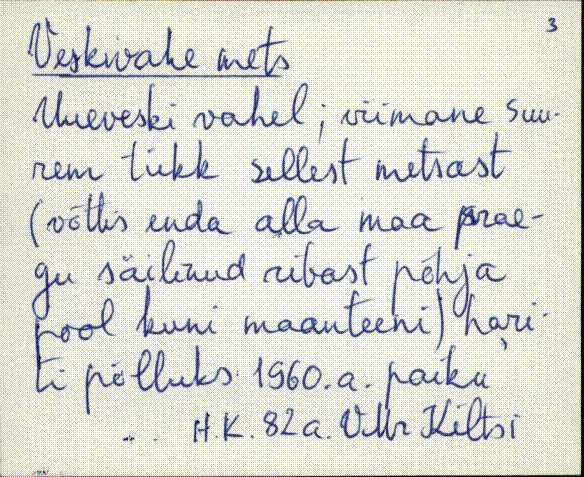 3
Veskivahe mets
Uueveski vahel; viimane suu-
rem tükk sellest metsast
(võttis enda alla maa prae-
gu säilinud ribast põhja
pool kuni maanteeni) hari-
ti põlluks 1960.a. paiku
H.K. 82 a. VMr Kiltsi